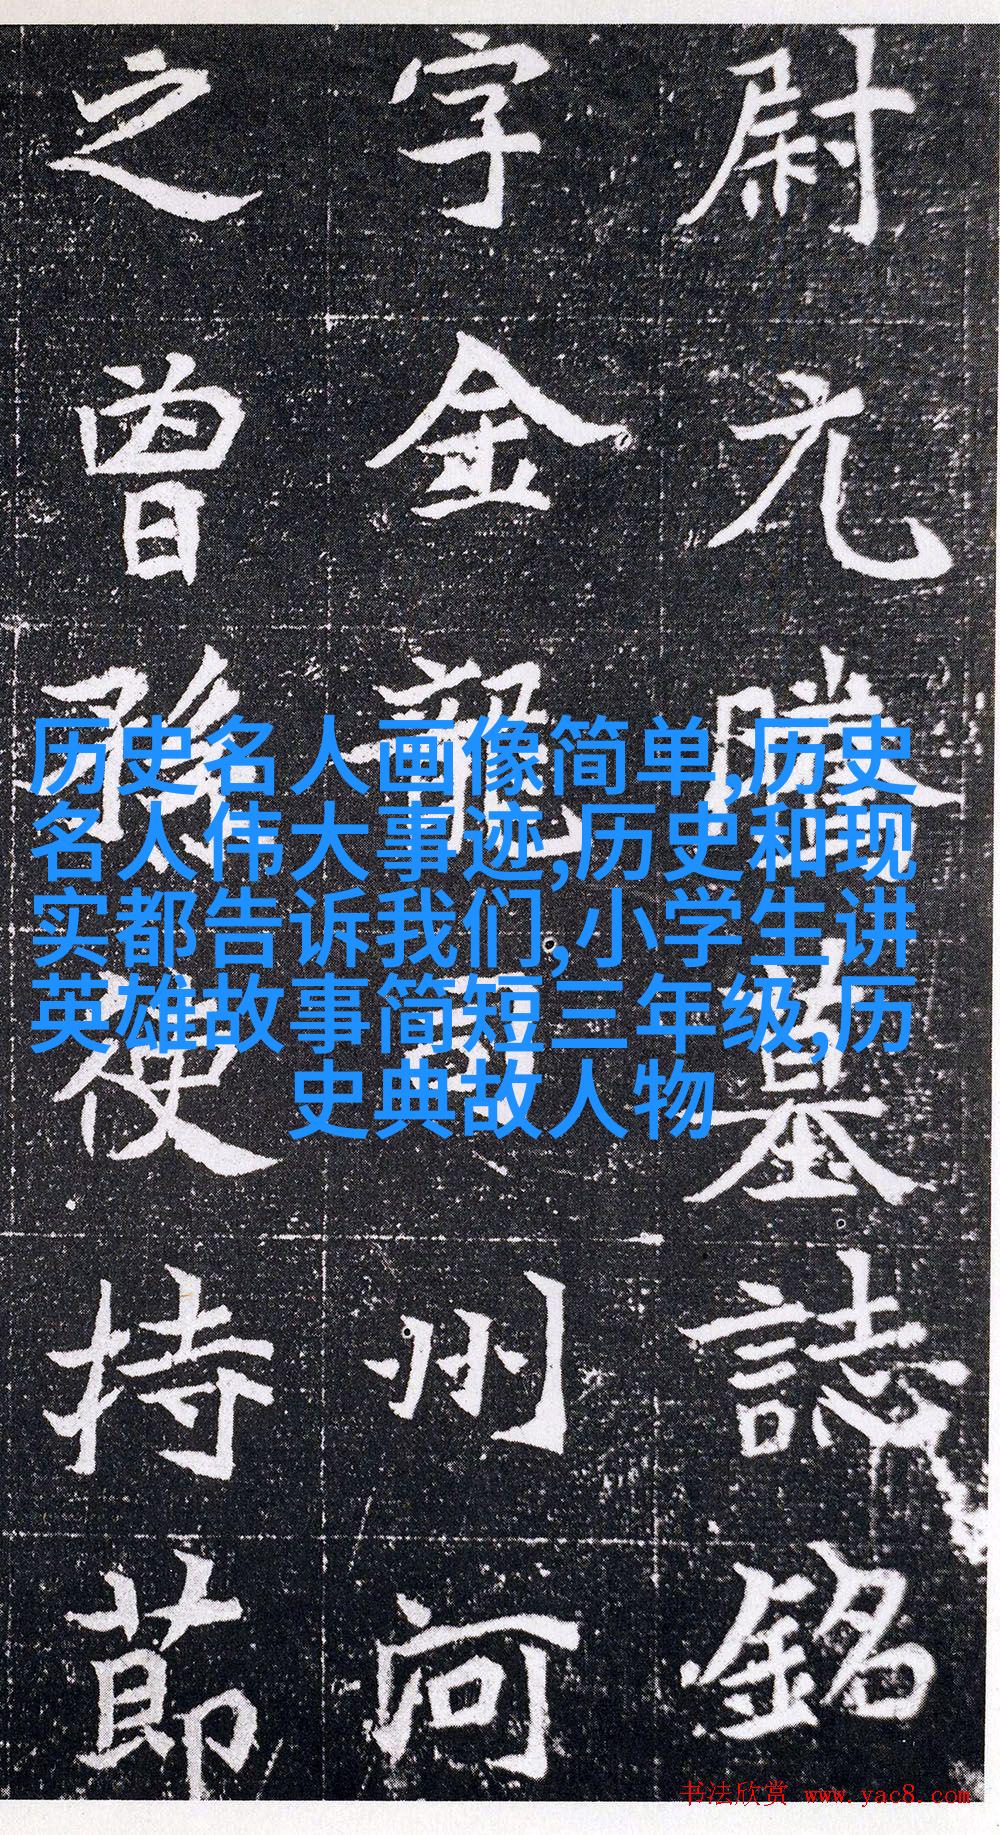 尉元騰墓誌銘
字金龍司州河
之曾孫使持節
历史名人画像简单,历史
名人伟大事迹,历史和现
实都告诉我们,小学生讲
英雄故事简短三年级,历
史典故人物
书法欣赏 www.yac8.com